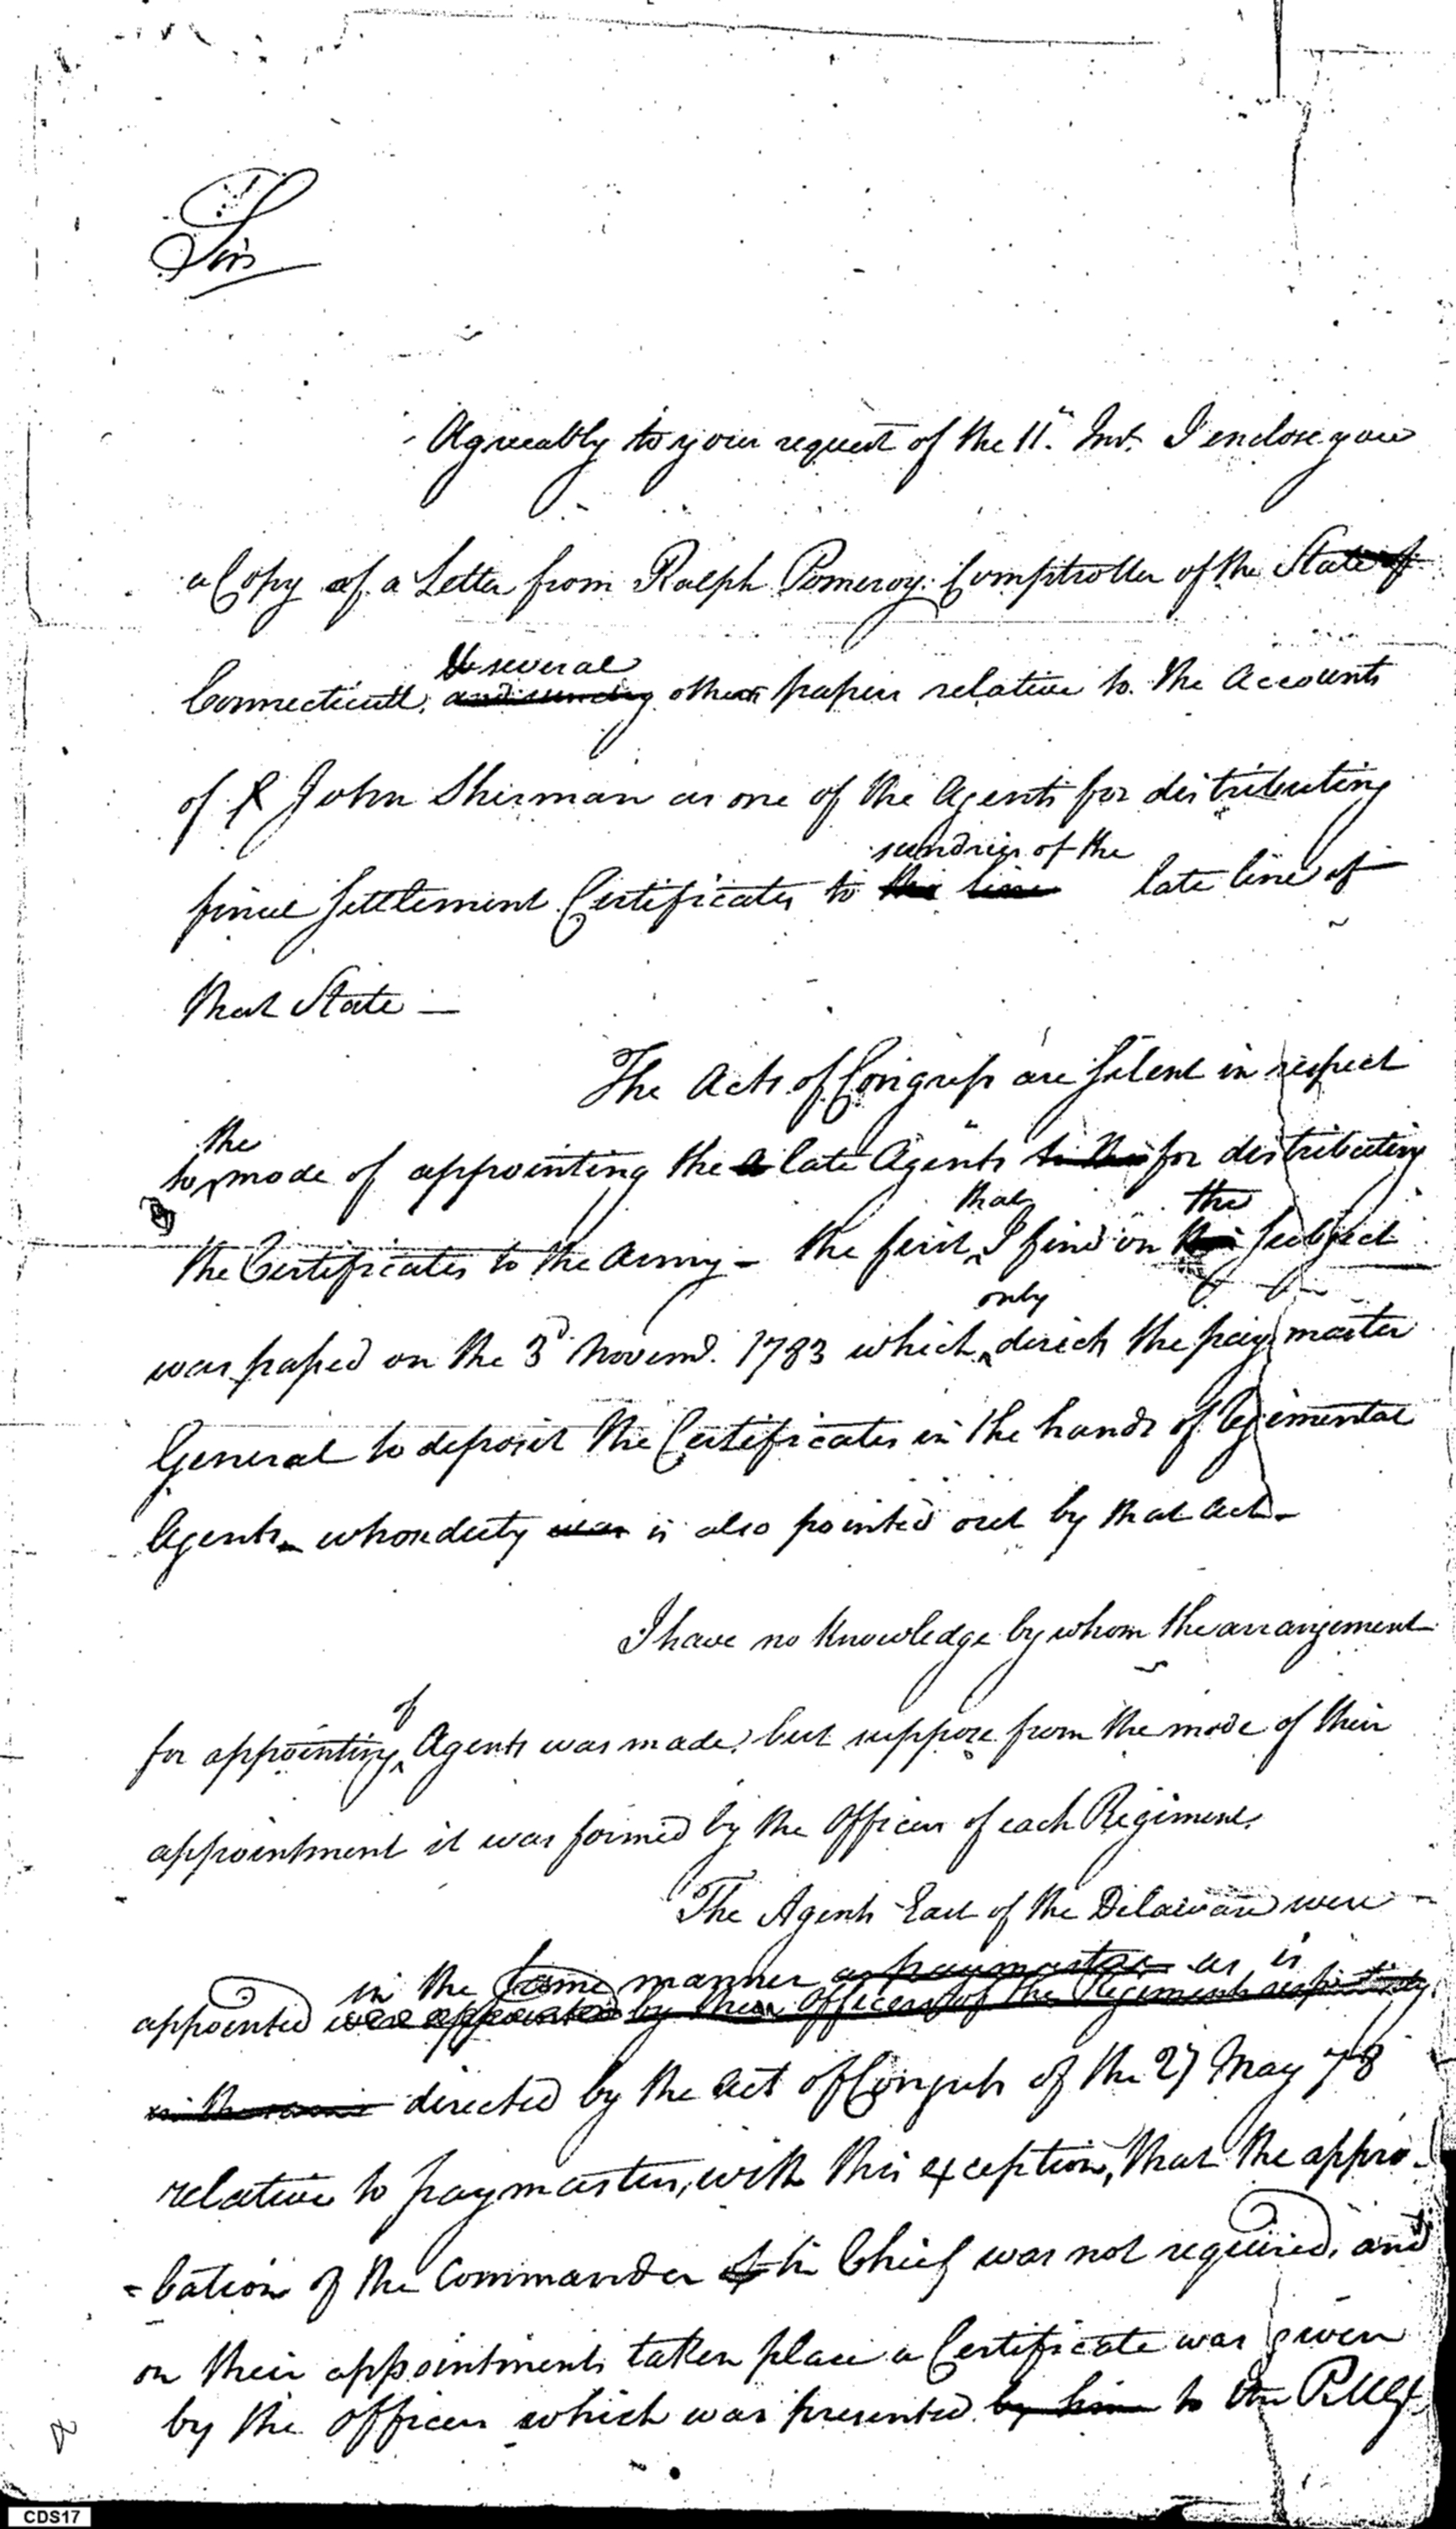 Sir
Agreeably to your request of the 11th Inst. I enclose you
a Copy of a Letter from Ralph Pomeroy Comptroller of the State of
& several
Connecticutt, and sundry other papers relative to the Accounts
of John Sherman as one of the Agents for distributing
sundries of the
final Settlement Certificates to the line late line of
that State —
The Acts of Congress are Silent in respect
the
to mode of appointing the late Agents to the for distributing
that the
the Certificates to the Army - the first I find on this Subject
only
was passed on the 3d Novemr. 1783 which directs the pay master
General to deposit the Certificates in the hands of Regimental
Agents - whose duty was is also pointed out by that Act -
I have no knowledge by whom the arrangement
of
for appointing Agents was made, but suppose from the mode of their
appointment it was formed by the Officers of each Regiment.
The Agents East of the Delaware were
in the same manner as paymaster as is
appointed were appointed by their Officers of the Regiments respectively
in the same directed by the Act of Congress of the 27 May 78
relative to paymasters, with this exception, that the appro-
-bation of the Commander in Chief was not required, and
on their appointments taken place a Certificate was given
by the officers which was presented by him to the P.M.Gl.
CDS17